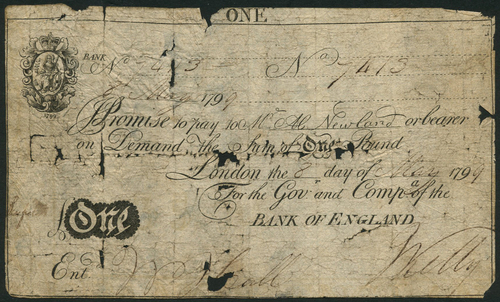 ONE
BANK
No 7413 No 7413
May 1799
I Promise to pay to Mr. Ab. Newland or bearer
on Demand the Sum of One Pound
London the 8 day of May 1799
For the Govr. and Compa. of the
BANK OF ENGLAND
£ One
Entd.